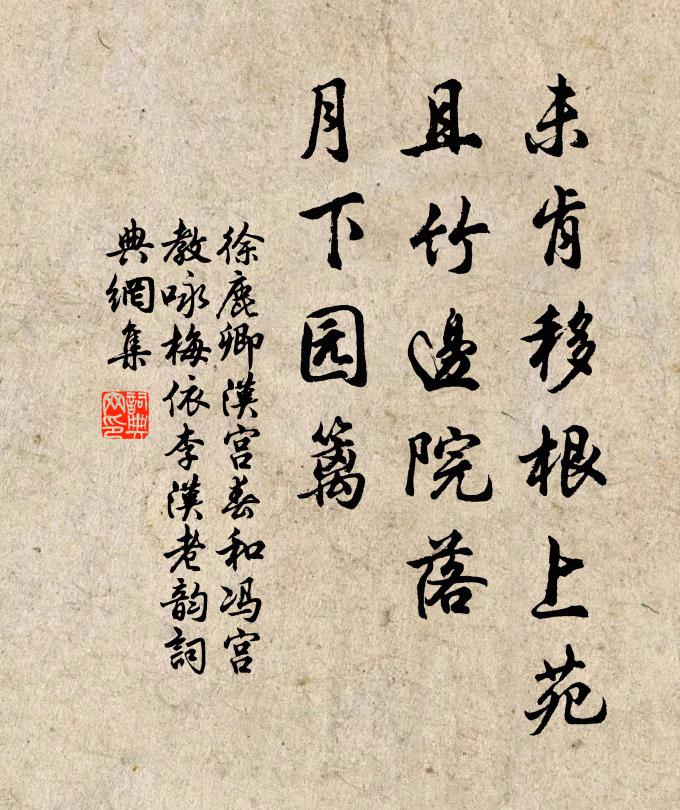 未肯移根上苑
且竹邊院落
月下园篱
徐鹿卿漢宫春和冯宫
教咏梅依李漢老韵詞
典網集
詞典
网印